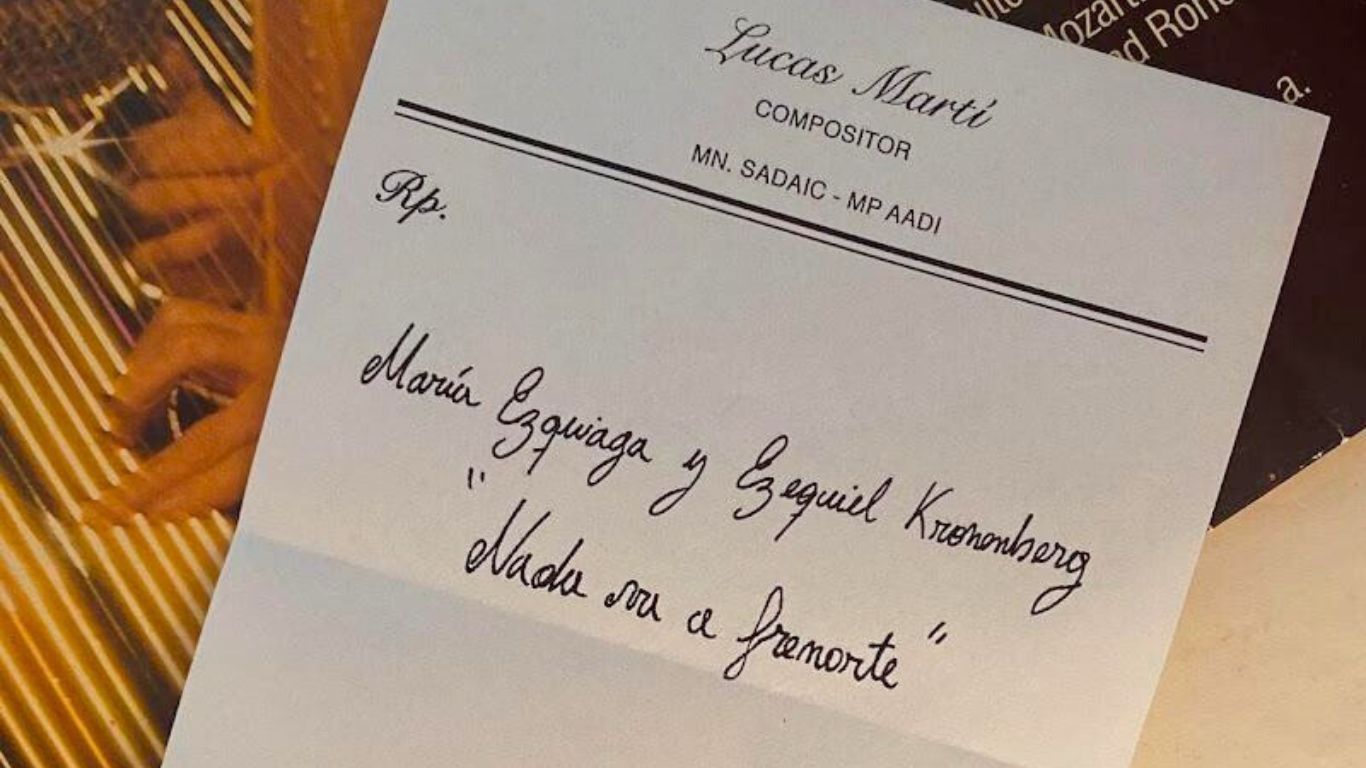 Lucas Martí
COMPOSITOR
MN. SADAIC - MP AADI
Rp.
María Ezquiaga y Ezequiel Kronenberg
"Nada va a frenorte"
Mozart
a.